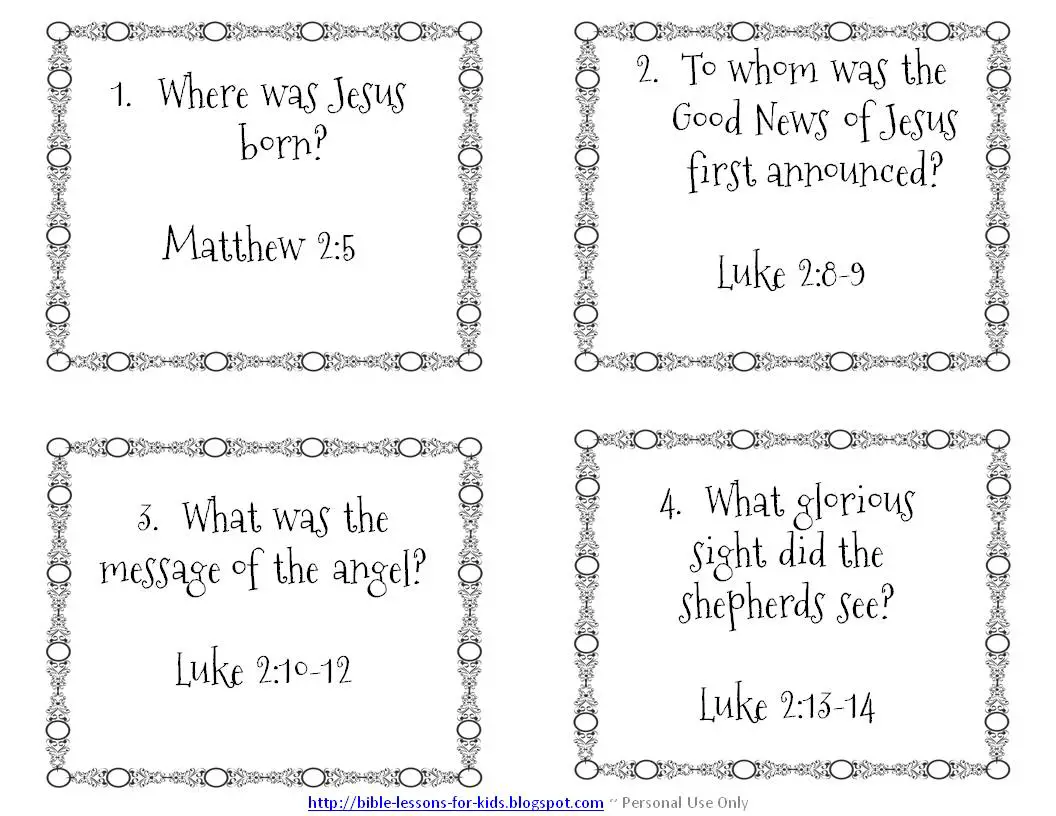 1. Where was Jesus
born?
Matthew 2:5
2. To whom was the
Good News of Jesus
first announced?
Luke 2:8-9
3. What was the
message of the angel?
Luke 2:10-12
4. What glorious
sight did the
shepherds see?
Luke 2:13-14
http://bible-lessons-for-kids.blogspot.com ~ Personal Use Only